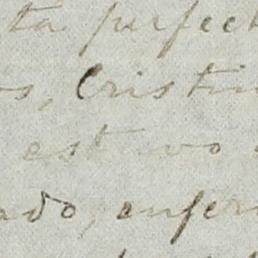 ta perfect
s, Cristin
estuvo
ado, enfer